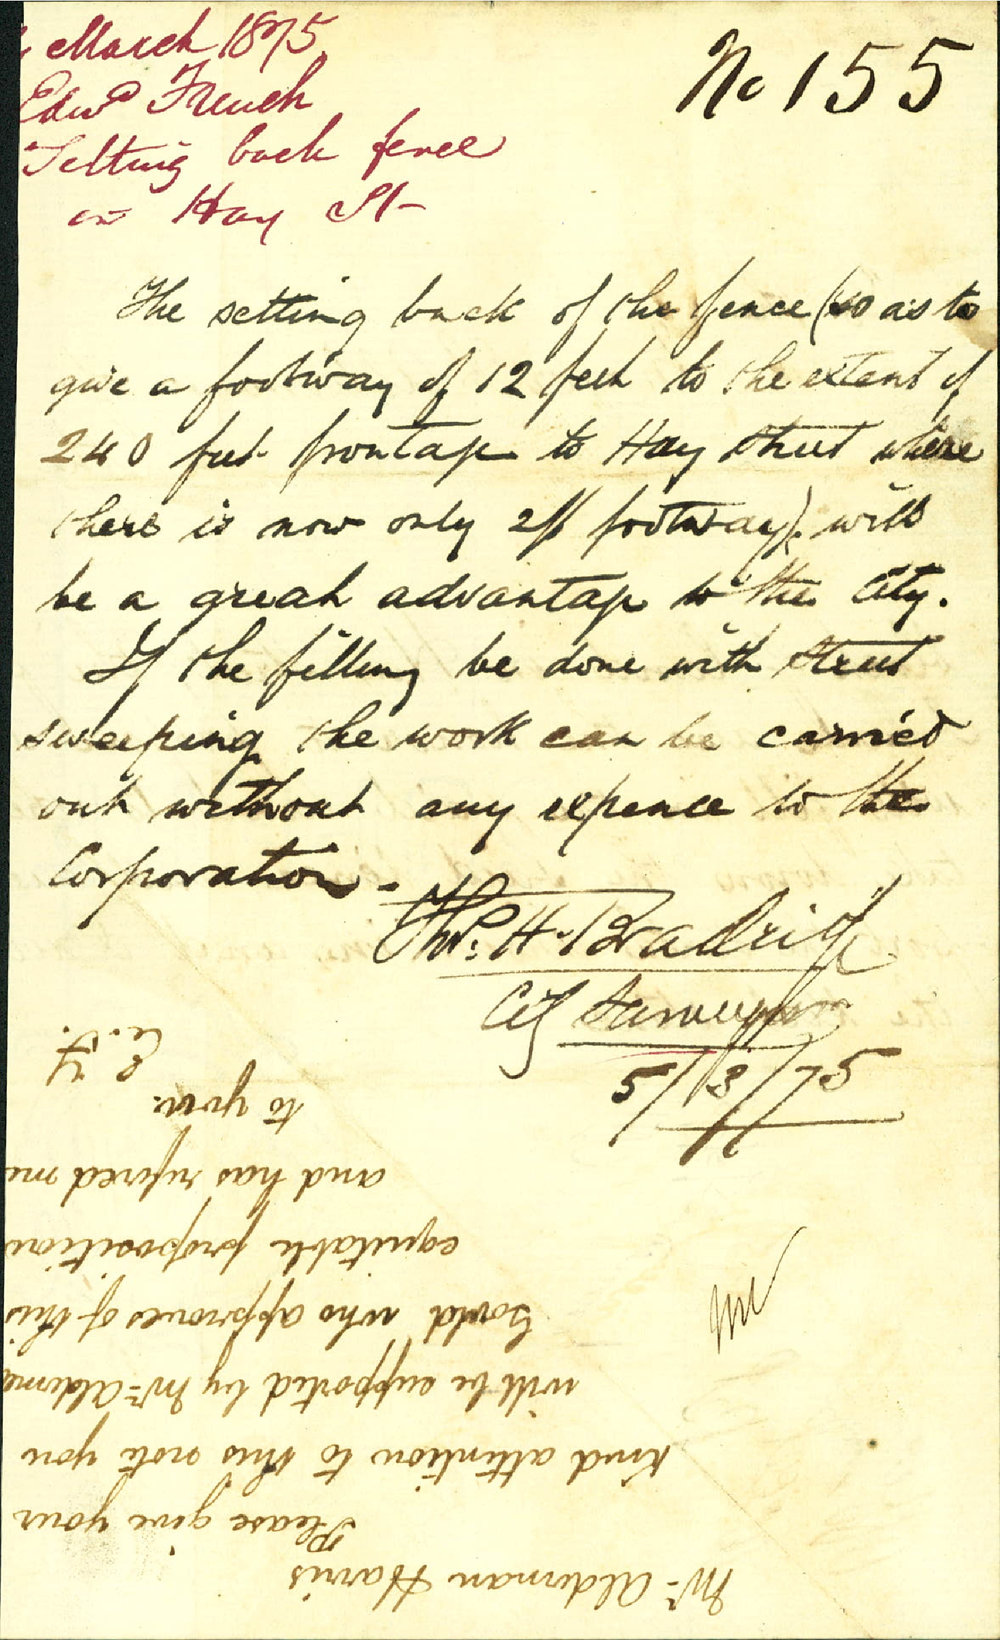 March 1875
Edwd French
Setting back fence
on Hay St
No 155
The setting back of the fence (so as to
give a footway of 12 feet to the extent of
240 feet frontage to Hay Street where
there is now only 2ft footway) will
be a great advantage to the City.
If the filling be done with street
sweeping the work can be carried
out without any expence to the
Corporation.
Thos. H. Bradridge
City Surveyor
5/3/75
Mr. Alderman Harris
Please give your
kind attention to this note you
will be supported by Mr. Alderma
Gould who approves of this
equitable proposition
and has refered me
to you.
E. F.